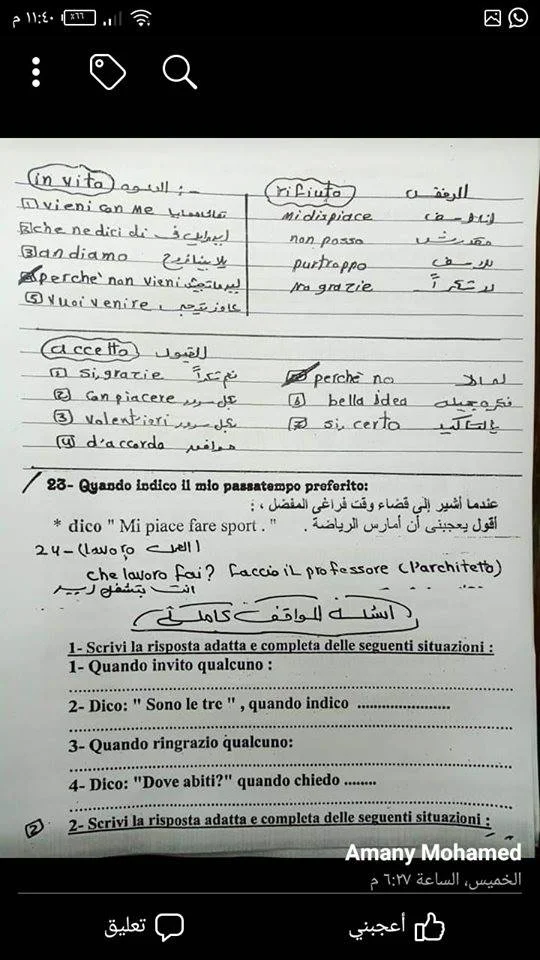 ١١:٤٠ م
٪٦٦
in vita الدعوه :-
1 vieni con me تعالى معايا
2 che ne dici di ايه رايك فى
3 andiamo يلا بينا نروح
4 perchè non vieni ليه ما تجيش
5 vuoi venire عاوز تيجى
rifiuto الرفض
mi dispiace انا اسف
non posso مقدرش
purtroppo للاسف
no grazie لا شكراً
accetto القبول
1 si, grazie نعم شكراً
2 con piacere بكل سرور
3 volentieri بكل سرور
4 d'accordo موافق
perchè no لما لا
6 bella idea فكره جميله
7 si, certo بالتأكيد
23- Quando indico il mio passatempo preferito:
عندما أشير إلى قضاء وقت فراغى المفضل ، :
* dico " Mi piace fare sport . " أقول يعجبنى أن أمارس الرياضة .
24- (lavoro العمل)
che lavoro fai? faccio il professore (l'architetto)
انت بتشتغل ايه
اسئلة المواقف كاملة
1- Scrivi la risposta adatta e completa delle seguenti situazioni :
1- Quando invito qualcuno :
2- Dico: " Sono le tre " , quando indico .....................
3- Quando ringrazio qualcuno:
4- Dico: "Dove abiti?" quando chiedo ........
2 2- Scrivi la risposta adatta e completa delle seguenti situazioni :
Amany Mohamed
الخميس، الساعة ٦:٢٧ م
أعجبني
تعليق